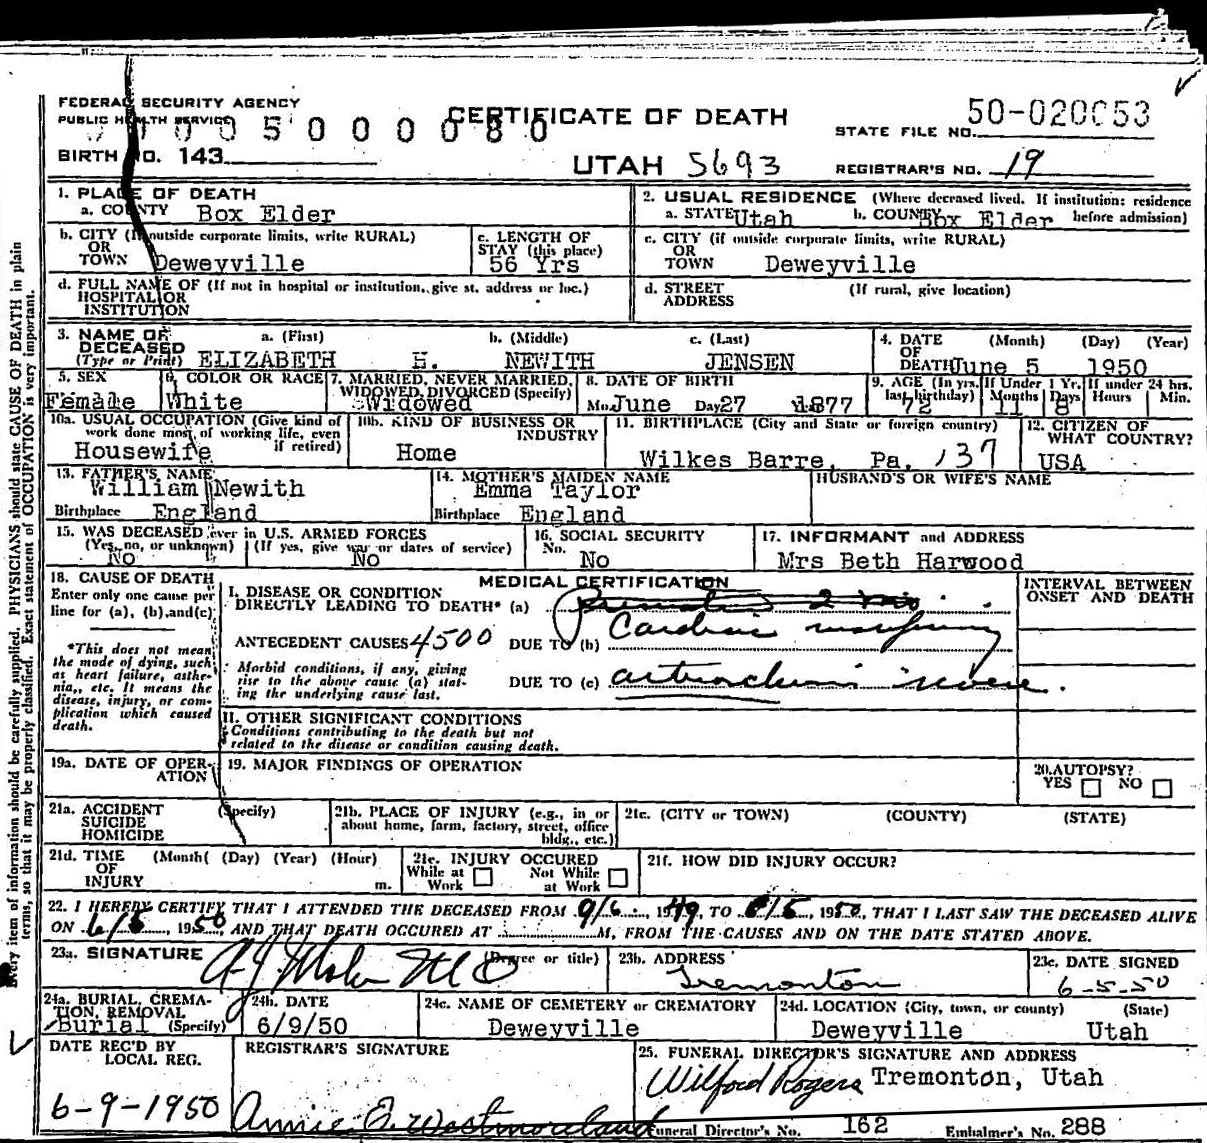 FEDERAL SECURITY AGENCY
PUBLIC HEALTH SERVICE
CERTIFICATE OF DEATH
STATE FILE NO. 50-020053
0005000080
BIRTH NO. 143
UTAH 5693
REGISTRAR'S NO. 19
Every item of information should be carefully supplied. PHYSICIANS should state CAUSE OF DEATH in plain
terms, so that it may be properly classified. Exact statement of OCCUPATION is very important.
1. PLACE OF DEATH
a. COUNTY Box Elder
2. USUAL RESIDENCE (Where deceased lived. If institution: residence
a. STATE Utah b. COUNTY Box Elder before admission)
b. CITY (If outside corporate limits, write RURAL)
OR
TOWN Deweyville
c. LENGTH OF
STAY (this place)
56 Yrs
c. CITY (if outside corporate limits, write RURAL)
OR
TOWN Deweyville
d. FULL NAME OF (If not in hospital or institution, give st. address or loc.)
HOSPITAL OR
INSTITUTION
d. STREET (If rural, give location)
ADDRESS
3. NAME OF a. (First) b. (Middle) c. (Last)
DECEASED
(Type or Print) ELIZABETH H. NEWITH JENSEN
4. DATE (Month) (Day) (Year)
OF
DEATH June 5 1950
5. SEX
Female
6. COLOR OR RACE
White
7. MARRIED, NEVER MARRIED,
WIDOWED, DIVORCED (Specify)
Widowed
8. DATE OF BIRTH
Mo. June Day 27 Yr. 1877
9. AGE (In yrs. If Under 1 Yr. If under 24 hrs.
last birthday) Months Days Hours Min.
72 11 8
10a. USUAL OCCUPATION (Give kind of
work done most of working life, even
if retired)
Housewife
10b. KIND OF BUSINESS OR
INDUSTRY
Home
11. BIRTHPLACE (City and State or foreign country)
Wilkes Barre, Pa. 137
12. CITIZEN OF
WHAT COUNTRY?
USA
13. FATHER'S NAME
William Newith
Birthplace England
14. MOTHER'S MAIDEN NAME
Emma Taylor
Birthplace England
HUSBAND'S OR WIFE'S NAME
15. WAS DECEASED ever in U.S. ARMED FORCES
(Yes, no, or unknown) (If yes, give war or dates of service)
No No
16. SOCIAL SECURITY
No.
No
17. INFORMANT and ADDRESS
Mrs Beth Harwood
18. CAUSE OF DEATH
Enter only one cause per
line for (a), (b),and(c)
*This does not mean
the mode of dying, such
as heart failure, asthe-
nia,, etc. It means the
disease, injury, or com-
plication which caused
death.
MEDICAL CERTIFICATION
I. DISEASE OR CONDITION
DIRECTLY LEADING TO DEATH* (a)
ANTECEDENT CAUSES 4500 DUE TO (b) Cardiac
Morbid conditions, if any, giving
rise to the above cause (a) stat-
ing the underlying cause last.
DUE TO (c)
II. OTHER SIGNIFICANT CONDITIONS
Conditions contributing to the death but not
related to the disease or condition causing death.
INTERVAL BETWEEN
ONSET AND DEATH
19a. DATE OF OPER-
ATION
19. MAJOR FINDINGS OF OPERATION
20. AUTOPSY?
YES NO
21a. ACCIDENT (Specify)
SUICIDE
HOMICIDE
21b. PLACE OF INJURY (e.g., in or
about home, farm, factory, street, office
bldg., etc.)
21c. (CITY or TOWN) (COUNTY) (STATE)
21d. TIME (Month( (Day) (Year) (Hour)
OF
INJURY m.
21e. INJURY OCCURED
While at Not While
Work at Work
21f. HOW DID INJURY OCCUR?
22. I HEREBY CERTIFY THAT I ATTENDED THE DECEASED FROM 9/6, 1949, TO 6/5, 1950, THAT I LAST SAW THE DECEASED ALIVE
ON 6/5, 1950, AND THAT DEATH OCCURED AT M, FROM THE CAUSES AND ON THE DATE STATED ABOVE.
23a. SIGNATURE (Degree or title)
MD
23b. ADDRESS
Tremonton
23c. DATE SIGNED
6-5-50
24a. BURIAL, CREMA-
TION, REMOVAL
Burial (Specify)
24b. DATE
6/9/50
24c. NAME OF CEMETERY or CREMATORY
Deweyville
24d. LOCATION (City, town, or county) (State)
Deweyville Utah
DATE REC'D BY
LOCAL REG.
6-9-1950
REGISTRAR'S SIGNATURE
Annie E. Westmoreland
25. FUNERAL DIRECTOR'S SIGNATURE AND ADDRESS
Wilford Rogers Tremonton, Utah
Funeral Director's No. 162 Embalmer's No. 288